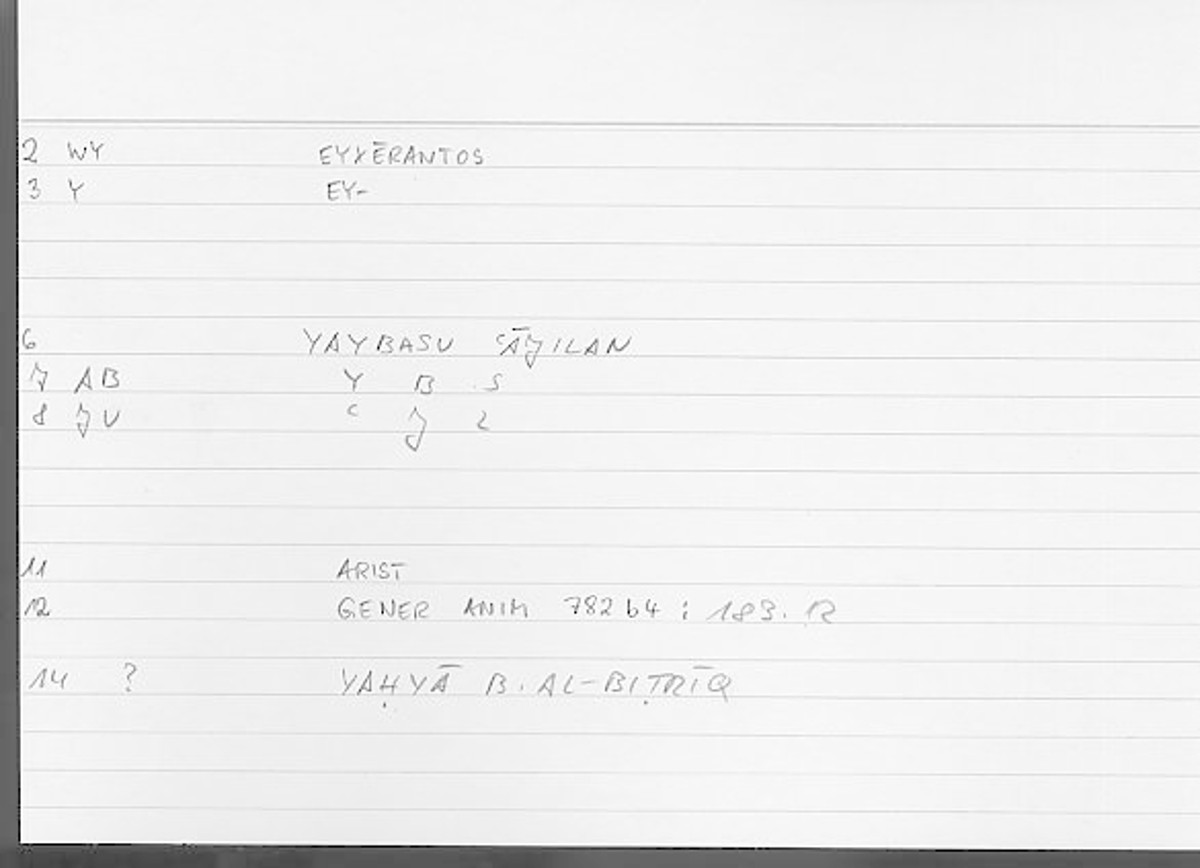 2 WY EYXĒRANTOS
3 Y EY-
6 YAYBASU ʿĀJILAN
7 AB Y B S
8 JU ʿ J L
11 ARIST
12 GENER ANIM 782 b4 : 183.12
14 ? YAḤYĀ B. AL-BIṬRĪQ